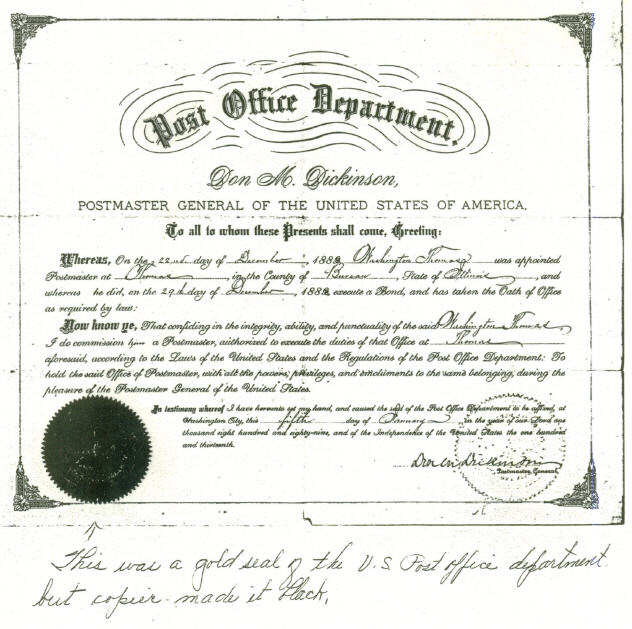 Post Office Department.
Don M. Dickinson,
POSTMASTER GENERAL OF THE UNITED STATES OF AMERICA.
To all to whom these Presents shall come, Greeting:
Whereas, On the 22nd day of December, 1888 Washington Thomas was appointed
Postmaster at Thomas, in the County of Bureau, State of Illinois, and
whereas he did, on the 29th day of December, 1888 execute a Bond, and has taken the Oath of Office
as required by law:
Now know ye, That confiding in the integrity, ability, and punctuality of the said Washington Thomas
I do commission him a Postmaster, authorized to execute the duties of that Office at Thomas
aforesaid, according to the Laws of the United States and the Regulations of the Post Office Department: To
hold the said Office of Postmaster, with all the powers, privileges, and emoluments to the same belonging, during the
pleasure of the Postmaster General of the United States.
In testimony whereof I have hereunto set my hand, and caused the seal of the Post Office Department to be affixed, at
Washington City, this fifth day of January in the year of our Lord one
thousand eight hundred and eighty-nine, and of the Independence of the United States the one hundred
and thirteenth.
Don M. Dickinson
Postmaster General.
This was a gold seal of the U.S Post office department
but copier made it black.